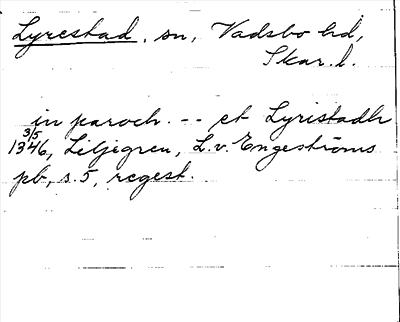 Lyrestad, sn, Vadsbo hd,
Skar. l.
in paroch. -- et Lyristadh
3/5
1346, Liljegren, L. v. Engeströms
pb, s. 5, regest.